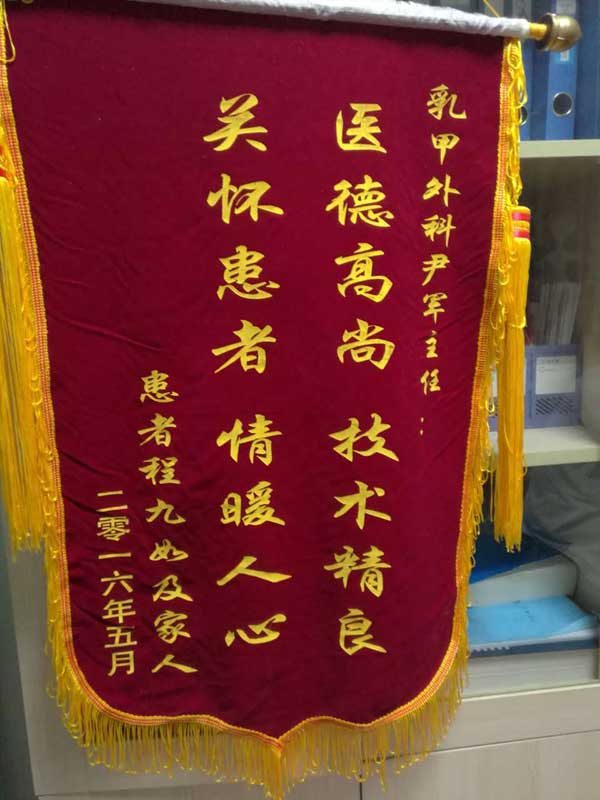 乳甲外科尹军主任：
医德高尚 技术精良
关怀患者 情暖人心
患者程九如及家人
二零一六年五月